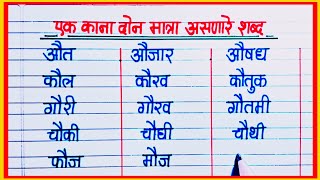 एक काना दोन मात्रा असणारे शब्द
औत औजार औषध
कौल कौरव कौतुक
गौरी गौरव गौतमी
चौकी चौघी चौथी
फौज मौज